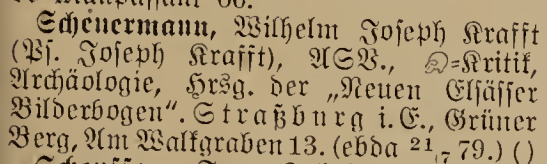 Scheuermann, Wilhelm Joseph Krafft
(Ps. Joseph Krafft), ASV., -Kritik,
Archäologie, Hrsg. der „Neuen Elsässer
Bilderbogen“. Straßburg i. E., Grüner
Berg, Am Walkgraben 13. (ebda 21, 79.) ()